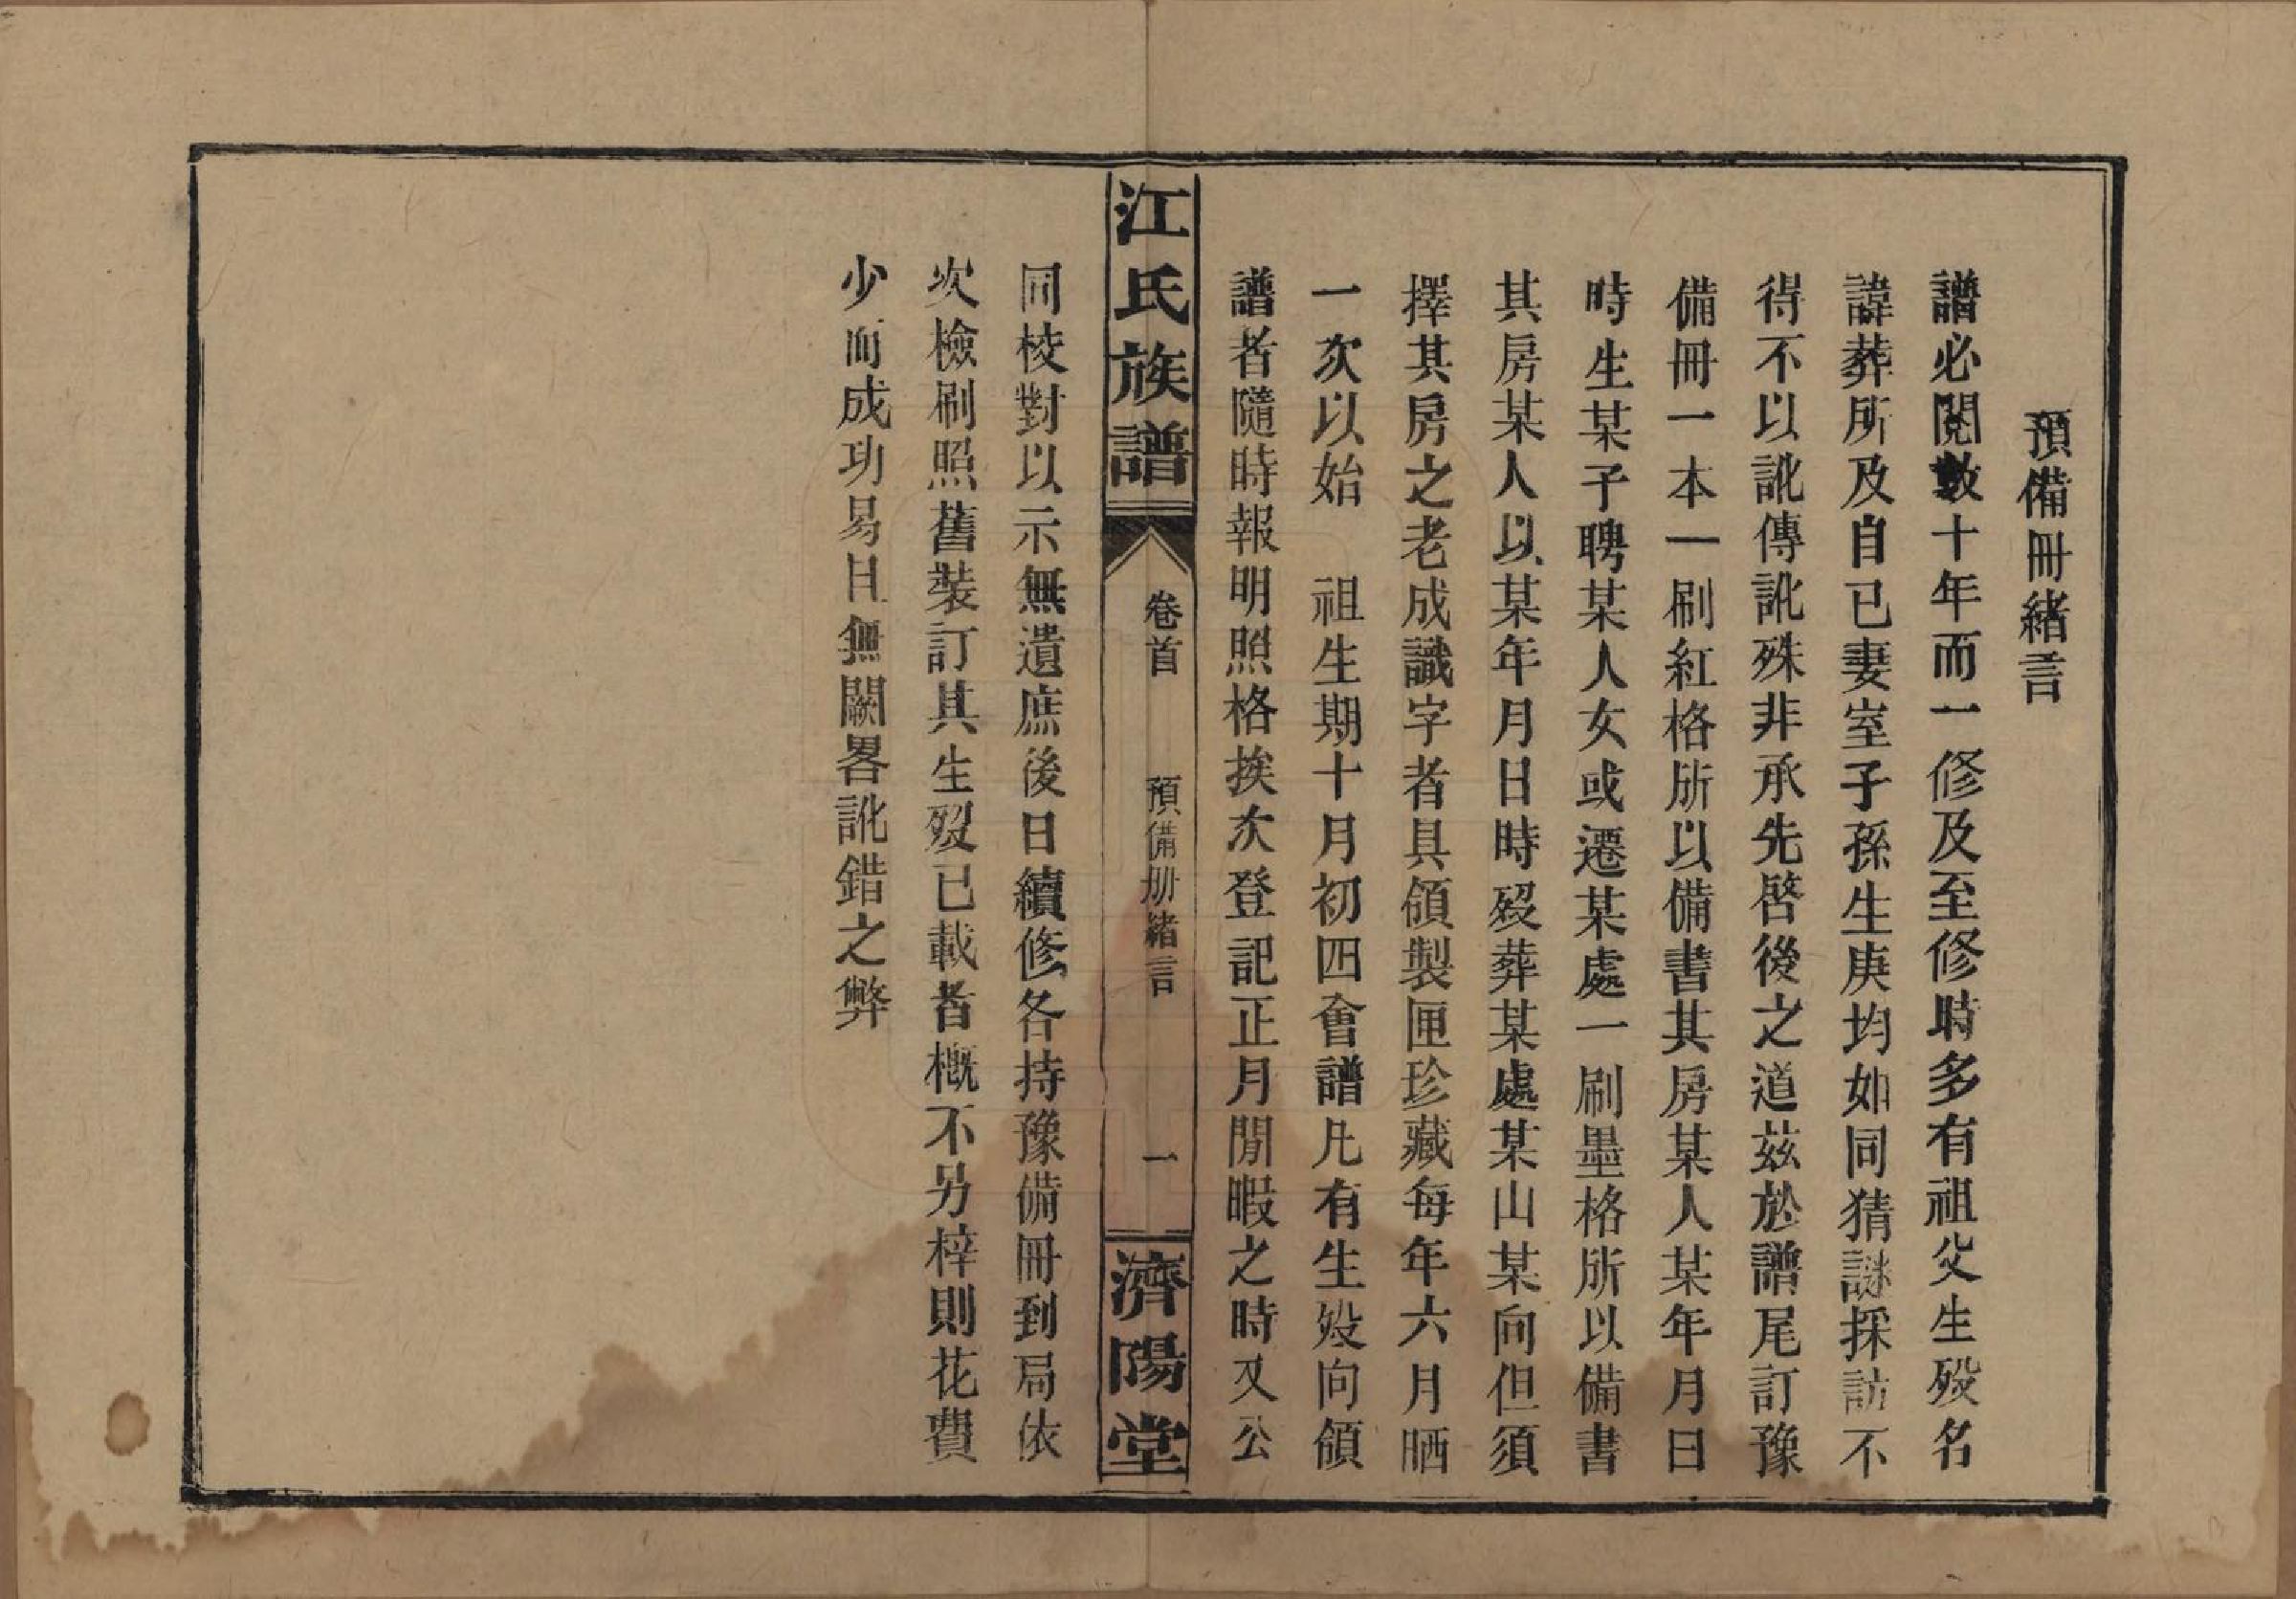 預備冊緒言
譜必閱數十年而一修及至修時多有祖父生歿名
諱葬所及自已妻室子孫生庚均如同猜謎採訪不
得不以訛傳訛殊非承先啓後之道茲於譜尾訂豫
備冊一本一刷紅格所以備書其房某人某年月日
時生某子聘某人女或遷某處一刷墨格所以備書
其房某人以某年月日時歿葬某處某山某向但須
擇其房之老成識字者具領製匣珍藏每年六月晒
一次以始　祖生期十月初四會譜凡有生歿向領
譜者隨時報明照格挨次登記正月閒暇之時又公
江氏族譜　卷首　預備册緒言　一　濟陽堂
同校對以示無遺庶後日續修各持豫備冊到局依
次檢刷照舊裝訂其生歿已載者概不另梓則花費
少而成功易且無闕畧訛錯之弊